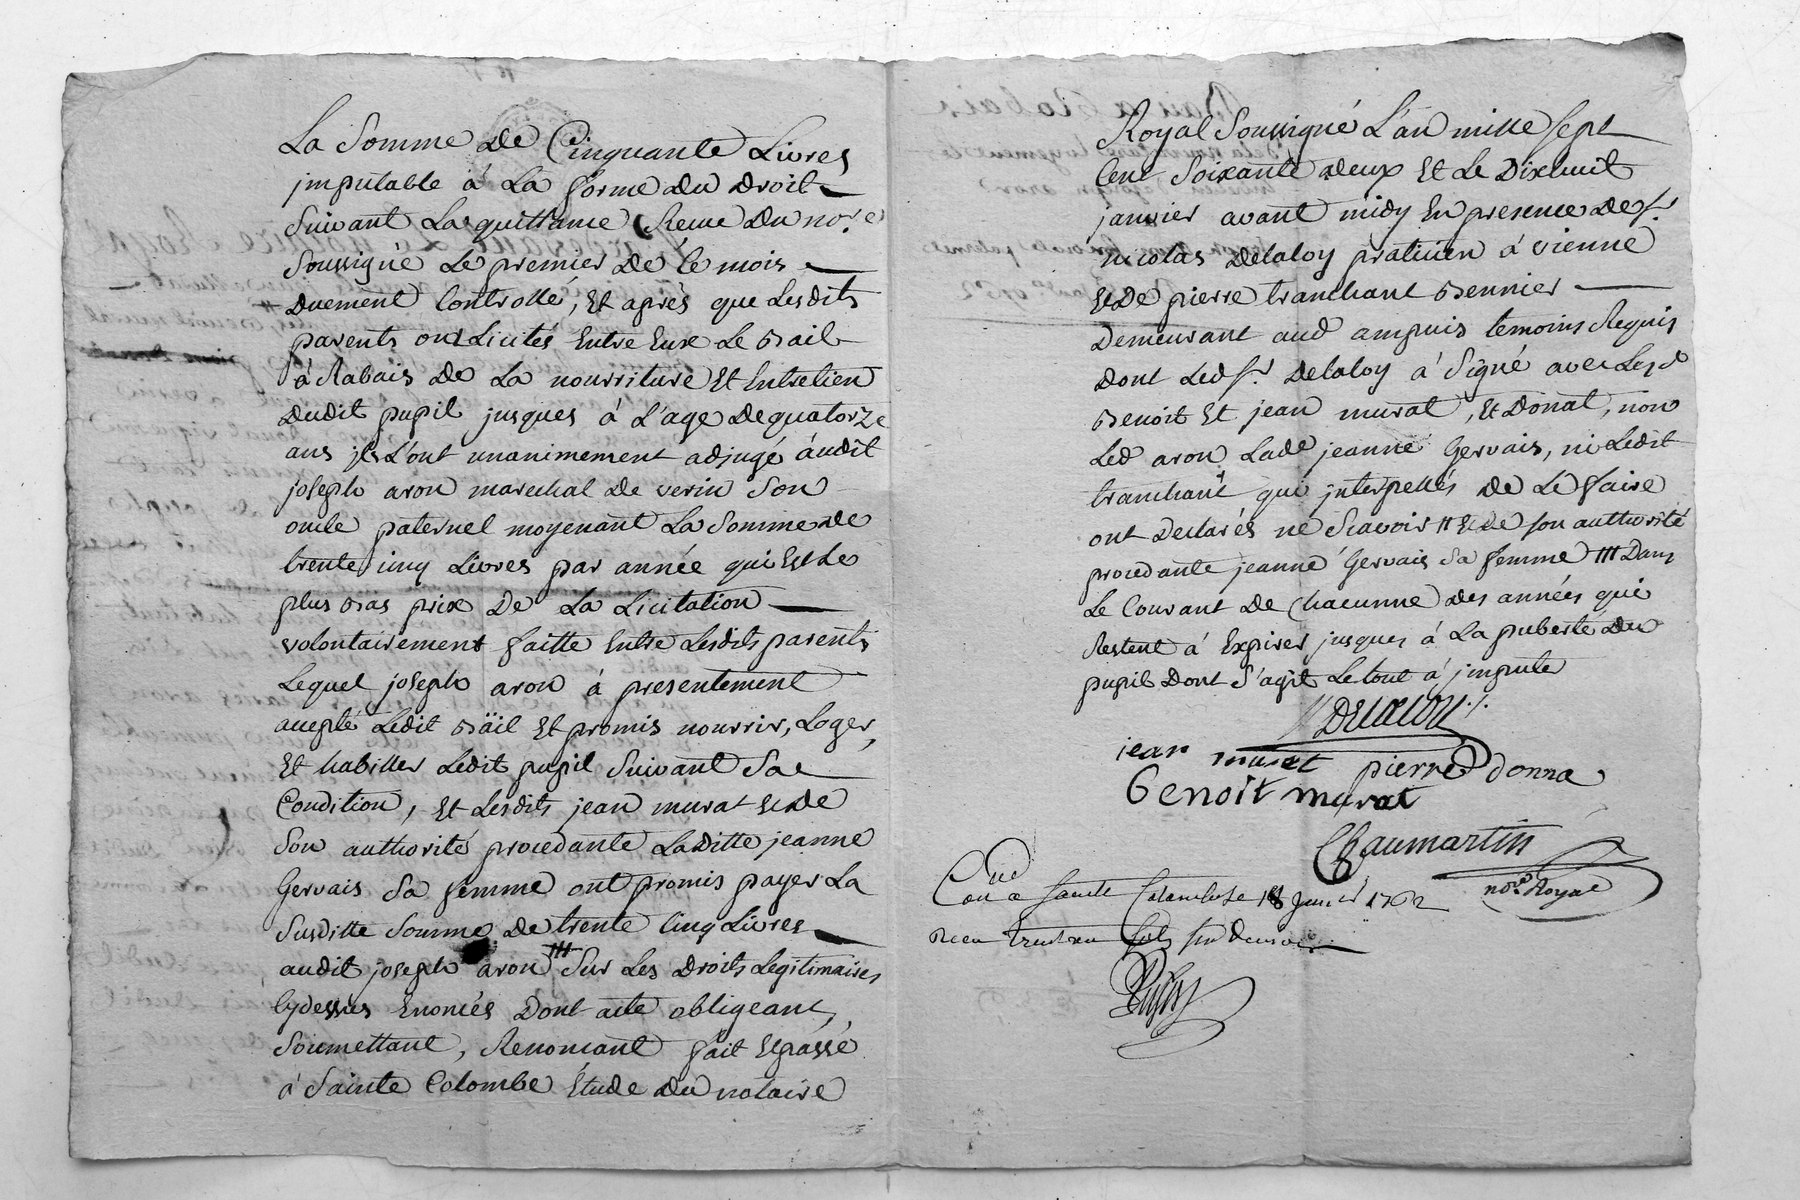 La Somme de Cinquante Livres
jmputable à La forme du droit
suivant La quittance Reçue du nore
soussigné Le premier de ce mois
duement Controllé, Et après que Lesdits
parents ont Licités Entre Eux Le Bail
à Rabais de La nourriture Et Entretien
dudit pupil jusques à L'age de quatorze
ans jls L'ont unanimement adjugé audit
joseph aron marechal de verin Son
oncle paternel moyenant La Somme de
trente cinq Livres par année qui Est Le
plus Bas prix De La Licitation
volontairement faitte Entre Lesdits parents
Lequel joseph aron à presentement
accepté Ledit Bäil Et promis nourrir, Loger,
Et habiller Ledit pupil Suivant Sa
Condition, Et Lesdits jean murat Et de
Son authorité procedante Laditte jeanne
Gervais Sa femme ont promis payer La
Susditte Somme de trente Cinq Livres
audit joseph aron /// Sur Les Droits Legitimaires
Cydessus Enoncés Dont acte obligeant,
Soumettant, Renoncant fait Et passé
à Sainte Colombe Etude du notaire
Royal Soussigné L'an mille Sept
Cent Soixante deux Et Le Dixhuit
janvier avant midy En presence de sr
nicolas Delaloy praticien à vienne
Et De pierre tranchant Bennier
Demeurant aud ampuis temoins Requis
Dont Led sr Delaloy à Signé avec Lesd
Benoit Et jean murat, Et Donat, non
Led aron Lade jeanne Gervais, ni Ledit
tranchant qui jnterpellés de Le faire
ont Declarés ne Scavoir // Et De son authorité
procedante jeanne Gervais Sa femme /// Dans
Le Courant De Chacunne des années qui
Restent à Expirer jusques à La puberté du
pupil Dont S'agit Le tout à jmputé
Delaloy
jean murat pierre donna
Benoit murat
Chaumartin
nore Royal
Con a Sainte Colombe le 18 Janer 1762